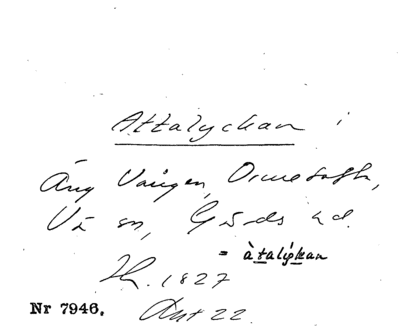 Attalyckan i
Äng Vången, Ormetofta,
Vä sn, Gärds hd.
= àtalýkan
Ht. 1827
Nr 7946. Ant 22